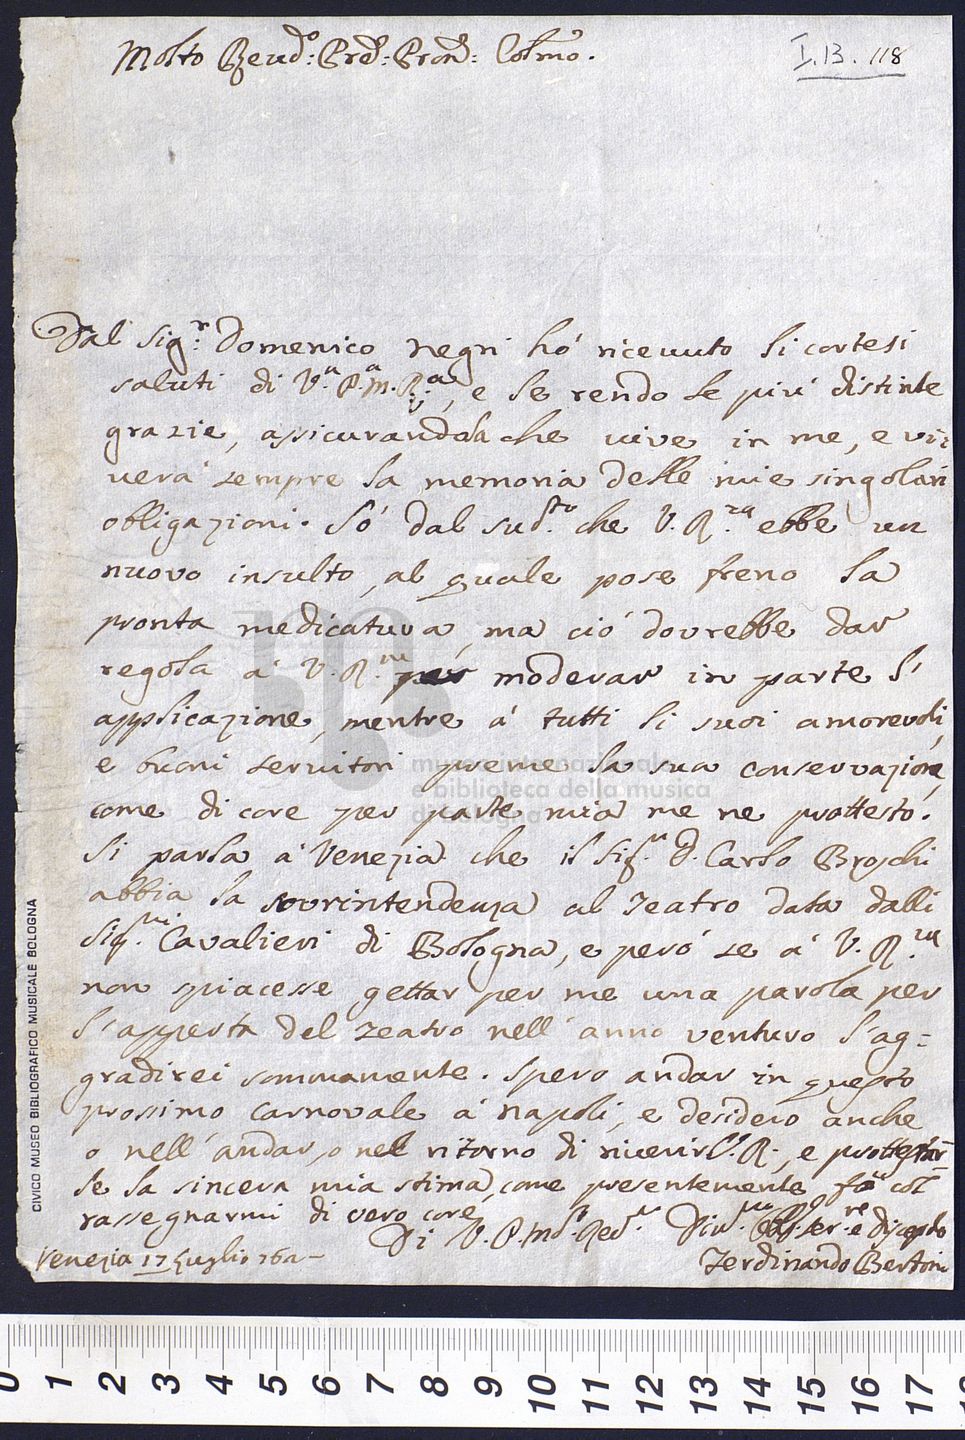 Molto Revdo: Prē: Pron̄: Colmō.
I.B. 118
Dal Sigr: Domenico Negri hò ricevuto li cortesi
saluti di Va. P.a M. R.a, e le rendo le più distinte
grazie, assicurandola che vive in me, e vi:
verà sempre la memoria delle mie singolari
obbligazioni. Sò dal sudto. che V. R.za ebbe un
nuovo insulto, al quale pose freno la
pronta medicatura, ma ciò dovrebbe dar
regola à V. R.za per moderar in parte l'
applicazione, mentre à tutti li suoi amorevoli,
e buoni servitori preme la sua conservazione,
come di core per parte mia me ne prottesto.
Si parla à Venezia che il Sigr. D. Carlo Broschi
abbia la sovrintendenza al Teatro data dalli
Sigri. Cavalieri di Bologna, e però se à V. R.za
non spiacesse gettar per me una parola per
l'apperta del Teatro nell'anno venturo l'ag=
gradirei sommamente. Spero andar in questo
prossimo Carnovale à Napoli, e desidero anche
o nell'andar, o nel ritorno di riverir V. R., e prottestar=
le la sincera mia stima, come presentemente fò col
rassegnarmi di vero core
Di V. P. M. Red.
Venezia 17 Luglio 176
Ferdinando Bertoni
CIVICO MUSEO BIBLIOGRAFICO MUSICALE BOLOGNA
museo internazionale
e biblioteca della musica
di bologna
0 1 2 3 4 5 6 7 8 9 10 11 12 13 14 15 16 17